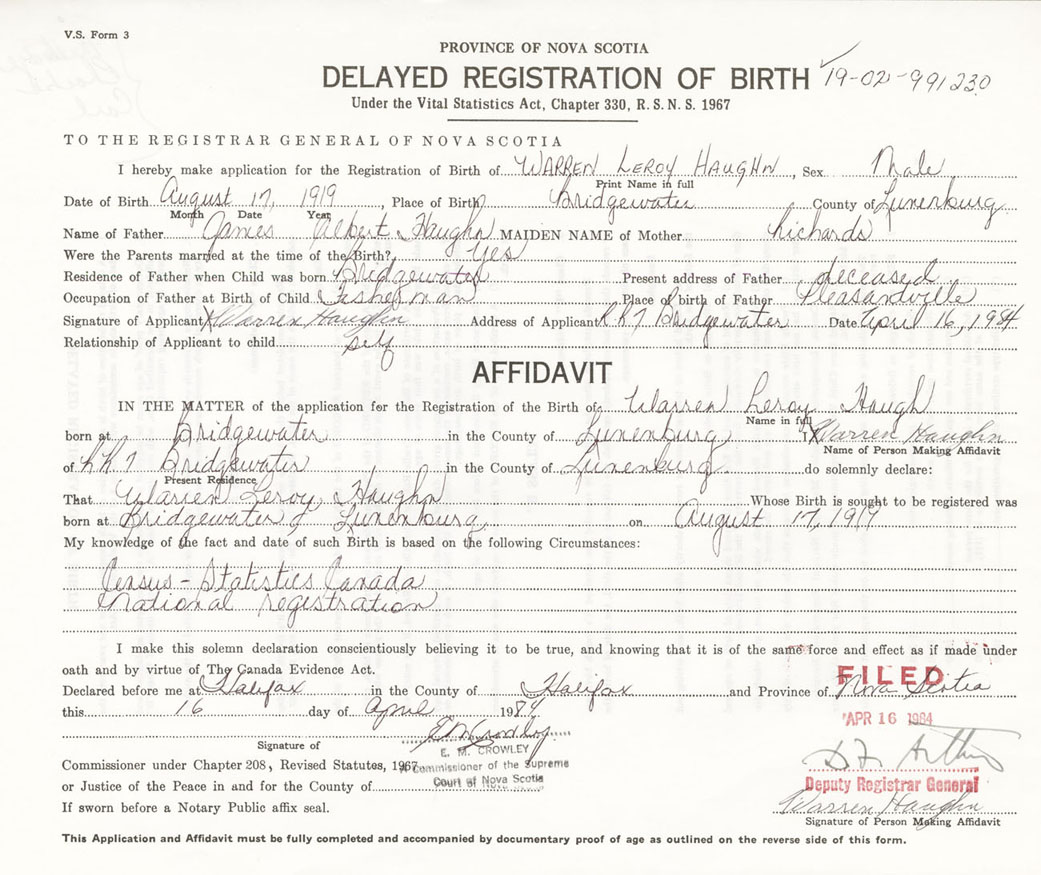 V.S. Form 3
PROVINCE OF NOVA SCOTIA
DELAYED REGISTRATION OF BIRTH 19-02-991230
Under the Vital Statistics Act, Chapter 330, R.S.N.S. 1967
TO THE REGISTRAR GENERAL OF NOVA SCOTIA
I hereby make application for the Registration of Birth of WARREN LEROY HAUGHN, Sex Male
Print Name in full
Date of Birth August 17, 1919, Place of Birth Bridgewater County of Lunenburg
Month Date Year
Name of Father James Albert Haughn MAIDEN NAME of Mother Richards
Were the Parents married at the time of the Birth? Yes
Residence of Father when Child was born Bridgewater Present address of Father deceased
Occupation of Father at Birth of Child Fisherman Place of birth of Father Pleasantville
Signature of Applicant X Warren Haughn Address of Applicant RR7 Bridgewater Date April 16, 1984
Relationship of Applicant to child self
AFFIDAVIT
IN THE MATTER of the application for the Registration of the Birth of Warren Leroy Haugh
Name in full
born at Bridgewater in the County of Lunenburg I X Warren Haughn
Name of Person Making Affidavit
of RR7 Bridgewater in the County of Lunenburg do solemnly declare:
Present Residence
That Warren Leroy Haughn Whose Birth is sought to be registered was
born at Bridgewater, Lunenburg on August 17, 1919
My knowledge of the fact and date of such Birth is based on the following Circumstances:
Census - Statistics Canada
National registration
I make this solemn declaration conscientiously believing it to be true, and knowing that it is of the same force and effect as if made under
oath and by virtue of The Canada Evidence Act.
FILED
Declared before me at Halifax in the County of Halifax and Province of Nova Scotia
this 16 day of April 1984
APR 16 1984
E M Crowley
Signature of E. M. CROWLEY
Commissioner under Chapter 208, Revised Statutes, 1967 A Commissioner of the Supreme
or Justice of the Peace in and for the County of Court of Nova Scotia
Deputy Registrar General
If sworn before a Notary Public affix seal.
Warren Haughn
Signature of Person Making Affidavit
This Application and Affidavit must be fully completed and accompanied by documentary proof of age as outlined on the reverse side of this form.